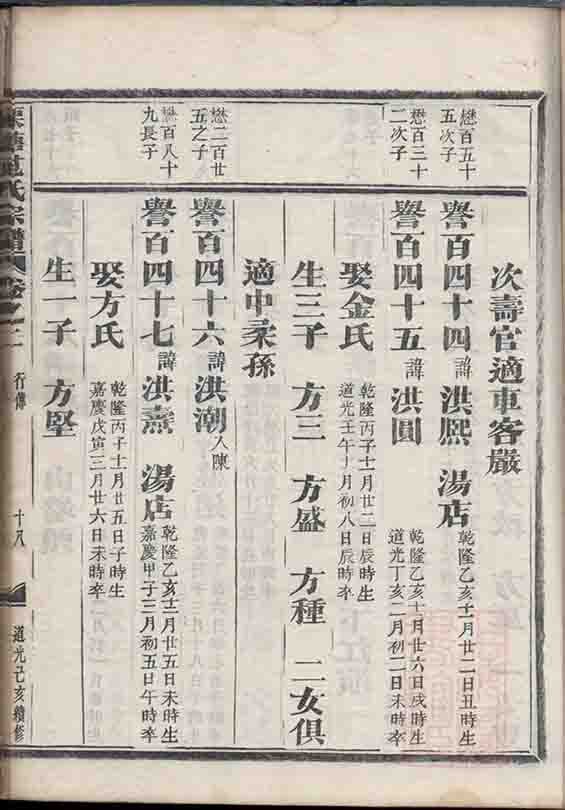 懋百五十
五次子
懋百三十
二次子
懋二百廿
五之子
懋百八十
九長子
次壽官適車客嚴
譽百四十四諱洪熙 湯店
乾隆乙亥十一月廿二日丑時生
譽百四十五諱洪圓
乾隆乙亥十一月廿六日戌時生
道光丁亥二月初二日未時卒
娶金氏
乾隆丙子十一月廿二日辰時生
道光壬午十月初八日辰時卒
生三子 方三 方盛 方種 二女俱
適中柔孫
譽百四十六諱洪潮入陳
譽百四十七諱洪燾 湯店
乾隆乙亥十二月廿五日未時生
嘉慶甲子三月初五日午時卒
娶方氏
乾隆丙子十一月廿五日子時生
嘉慶戊寅三月廿六日未時卒
生一子 方堅
氏宗譜 卷之二
行傳
十八
道光己亥續修